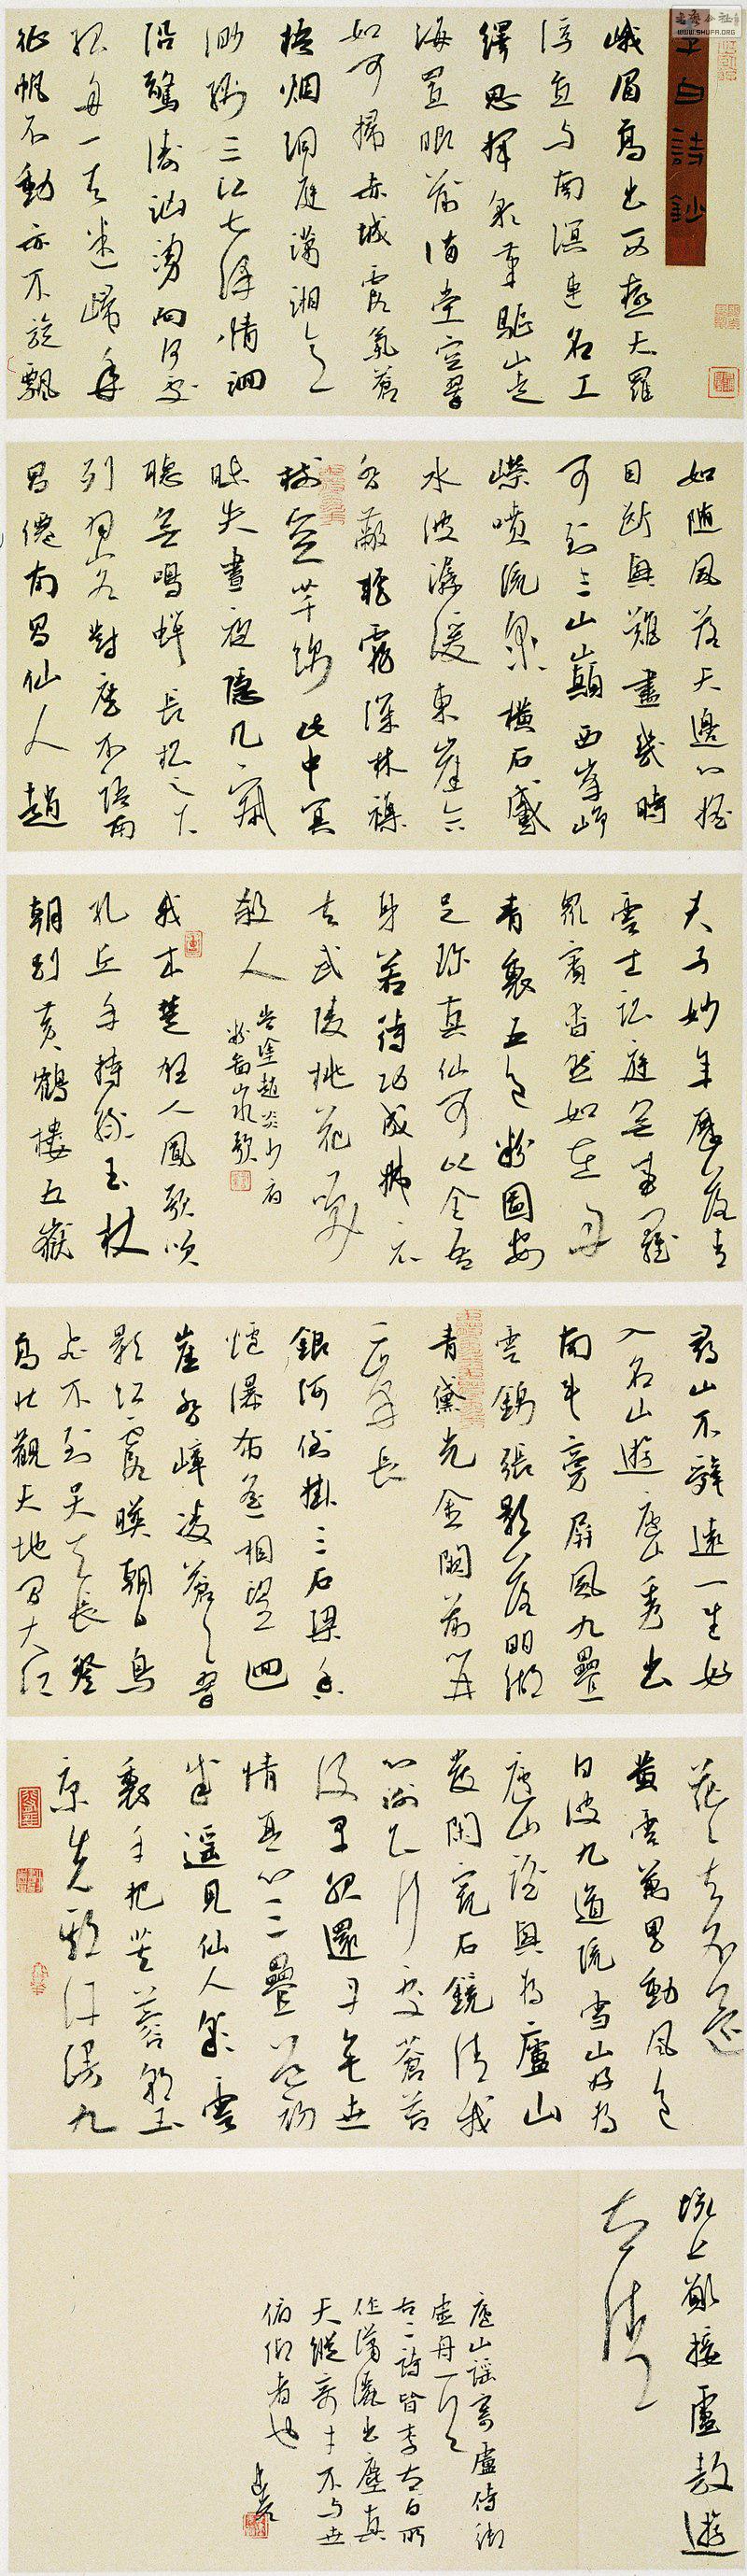 李白詩鈔
峨眉高出西極天羅
浮直与南溟連名工
繹思揮彩筆驅山走
海置眼前滿堂空翠
如可掃赤城霞氣蒼
梧烟洞庭瀟湘意
渺綿三江七澤情洄
沿驚濤汹湧向何處
孤舟一去迷歸年
征帆不動亦不旋飄
如隨風落天邊心搖
目斷興難盡幾時
可到三山巔西峯崢
嶸噴流泉橫石蹙
水波潺湲東崖合
沓蔽輕霧深林雜
樹空芊綿此中冥
昧失晝夜隱几寂
聽無鳴蟬長松之下
列羽客對座不語南
昌僊南昌仙人趙
夫子妙年歷落青
雲士訟庭無事羅
眾賓杳然如在丹
青裏五色粉圖安
足珍真仙可以全吾
身若待功成拂衣
去武陵桃花笑
殺人
當塗趙炎少府
粉圖山水歌
我本楚狂人鳳歌笑
孔丘手持綠玉杖
朝別黃鶴樓五嶽
尋山不辭遠一生好
入名山遊廬山秀出
南斗旁屏風九疊
雲錦張影落明湖
青黛光金闕前開
二峯長
銀河倒掛三石梁香
爐瀑布遙相望迴
崖沓嶂凌蒼蒼翠
影紅霞映朝日鳥
飛不到吳天長登
高壯觀天地間大江
茫茫去不還
黃雲萬里動風色
白波九道流雪山好為
廬山謠興為廬山
發閑窺石鏡清我
心謝公行處蒼苔
沒早服還丹無世
情琴心三疊道初
成遙見仙人彩雲
裏手把芙蓉朝玉
京先期汗漫九
垓上願接盧敖遊
太清
廬山謠寄盧侍御
虛舟一作
右二詩皆李太白所
作瀟灑出塵真
天縱奇才不与世
俯仰者也